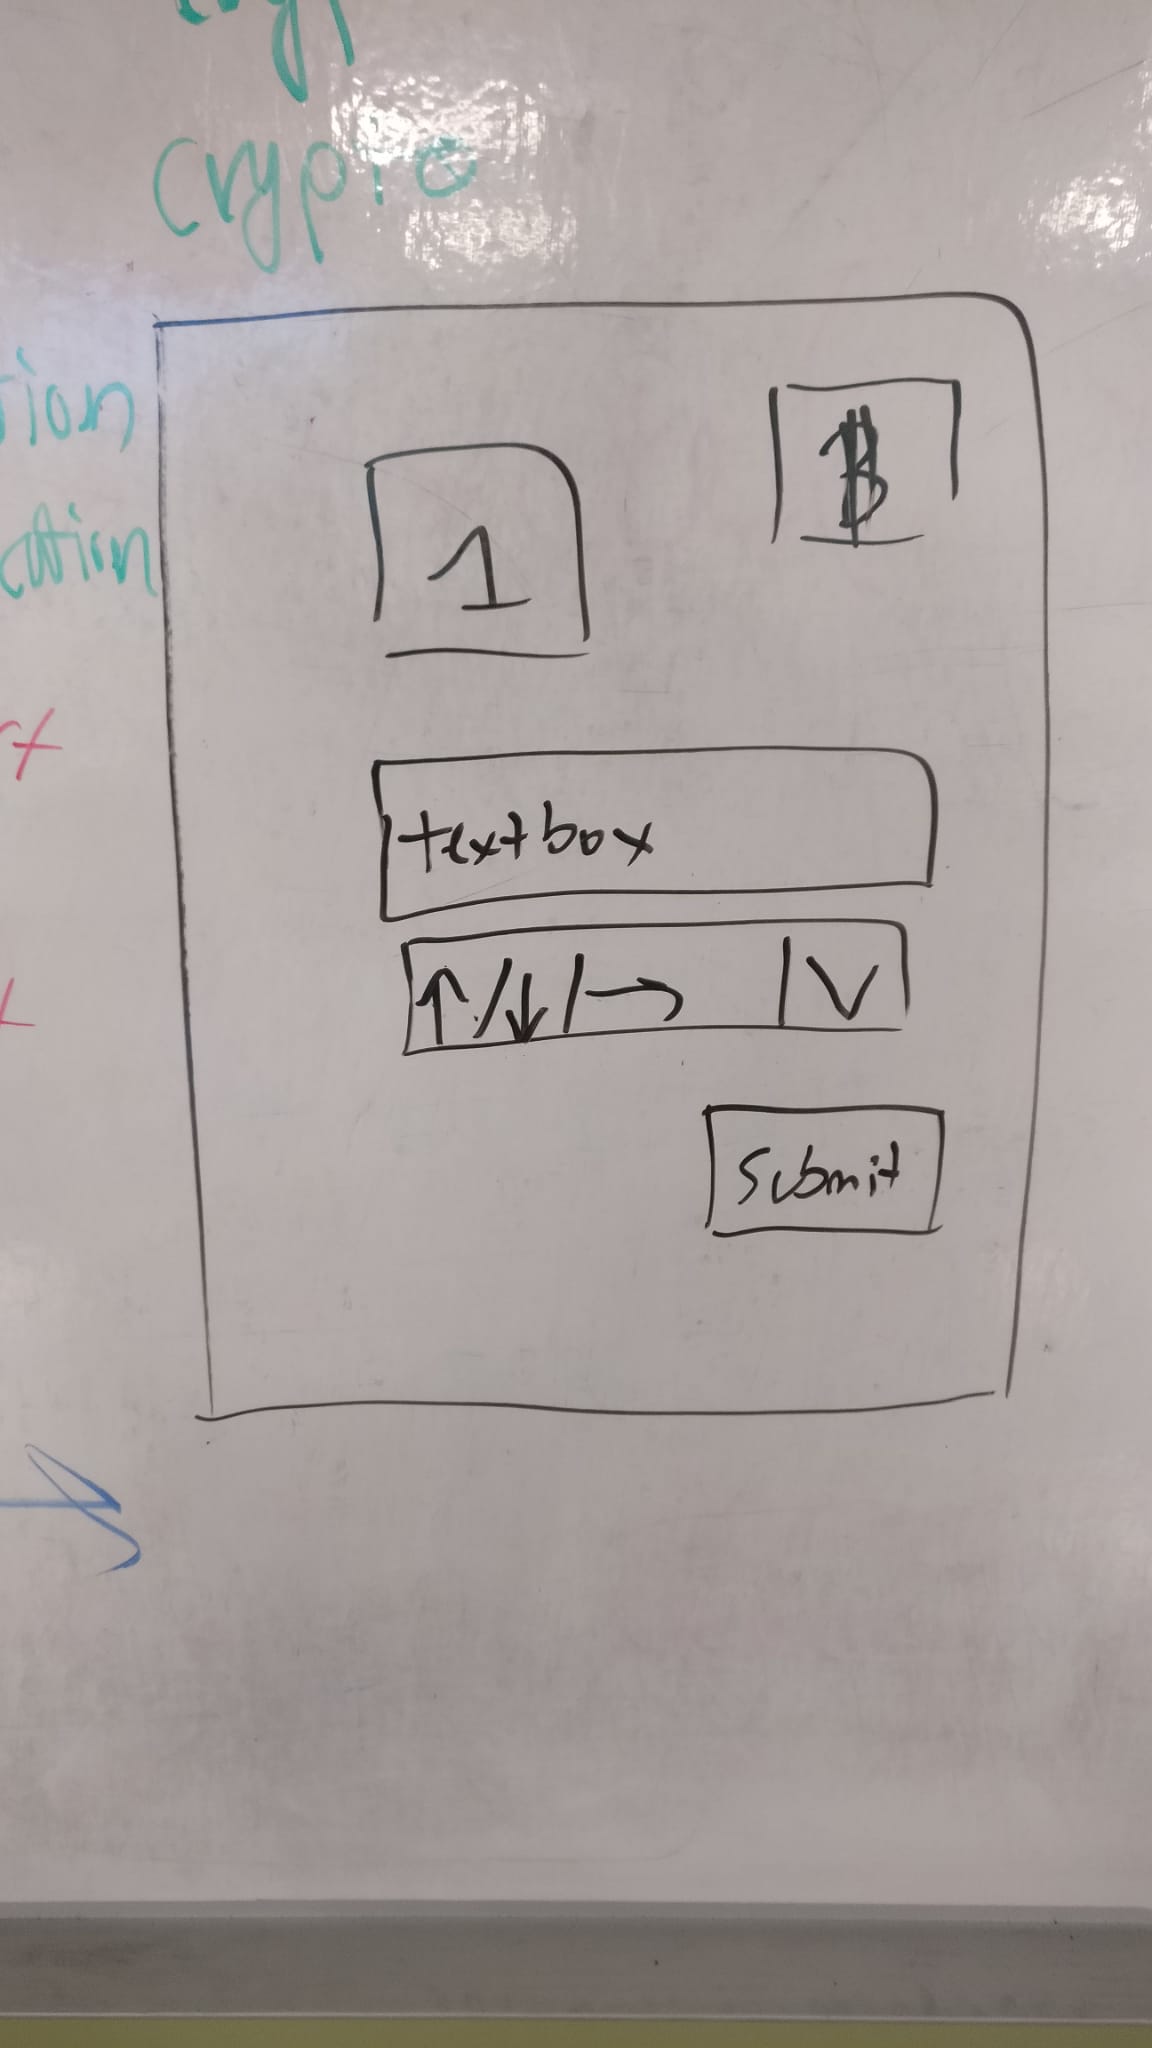 crypto
tion
cation
₿
1
textbox
↑/↓/→ | V
Submit